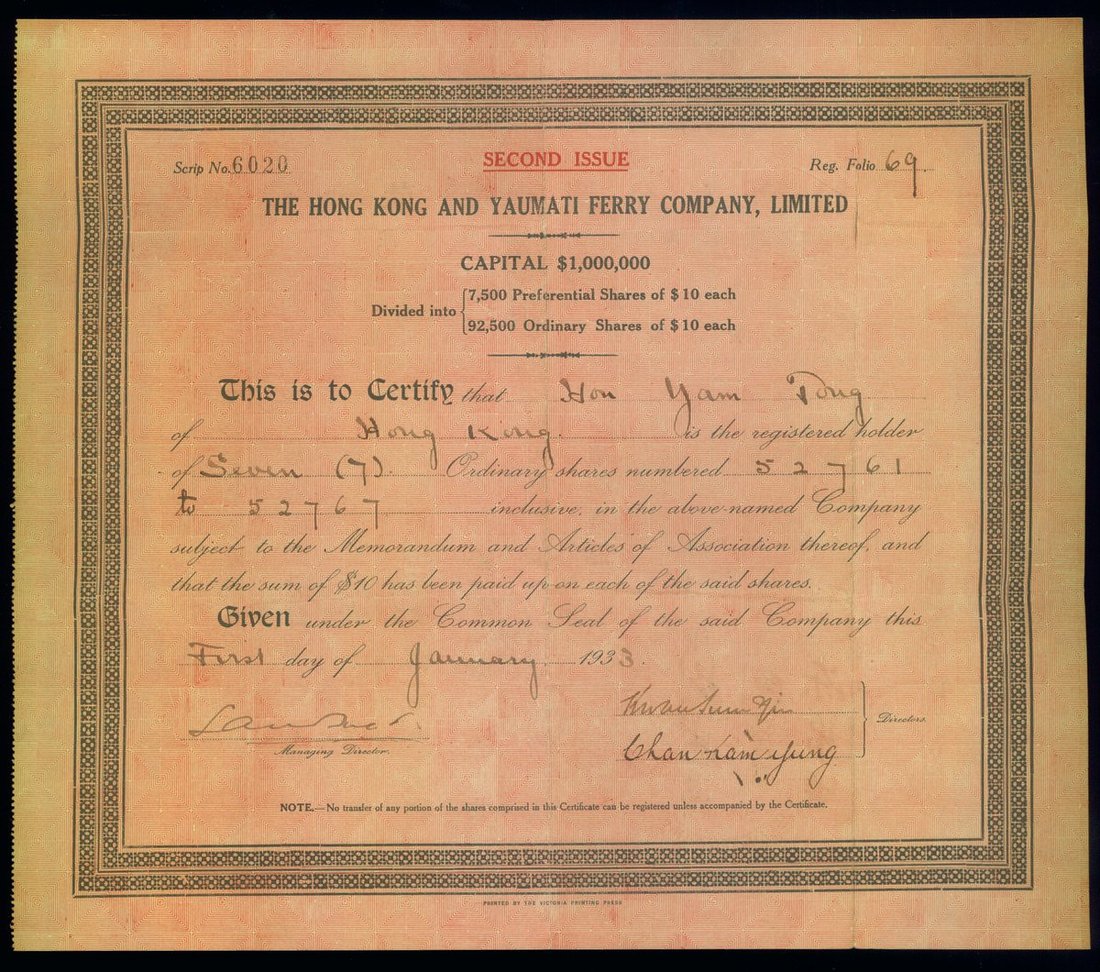 Scrip No. 6020
SECOND ISSUE
Reg. Folio 69
THE HONG KONG AND YAUMATI FERRY COMPANY, LIMITED
CAPITAL $1,000,000
Divided into
7,500 Preferential Shares of $10 each
92,500 Ordinary Shares of $10 each
This is to Certify that Hon Yam Tong
of Hong Kong. is the registered holder
of Seven (7). Ordinary shares numbered 52761
to 52767 inclusive, in the above-named Company
subject to the Memorandum and Articles of Association thereof, and
that the sum of $10 has been paid up on each of the said shares.
Given under the Common Seal of the said Company this
First day of January, 1933.
Managing Director.
Chan Lam Yung
Directors.
NOTE.—No transfer of any portion of the shares comprised in this Certificate can be registered unless accompanied by the Certificate.
PRINTED BY THE VICTORIA PRINTING PRESS